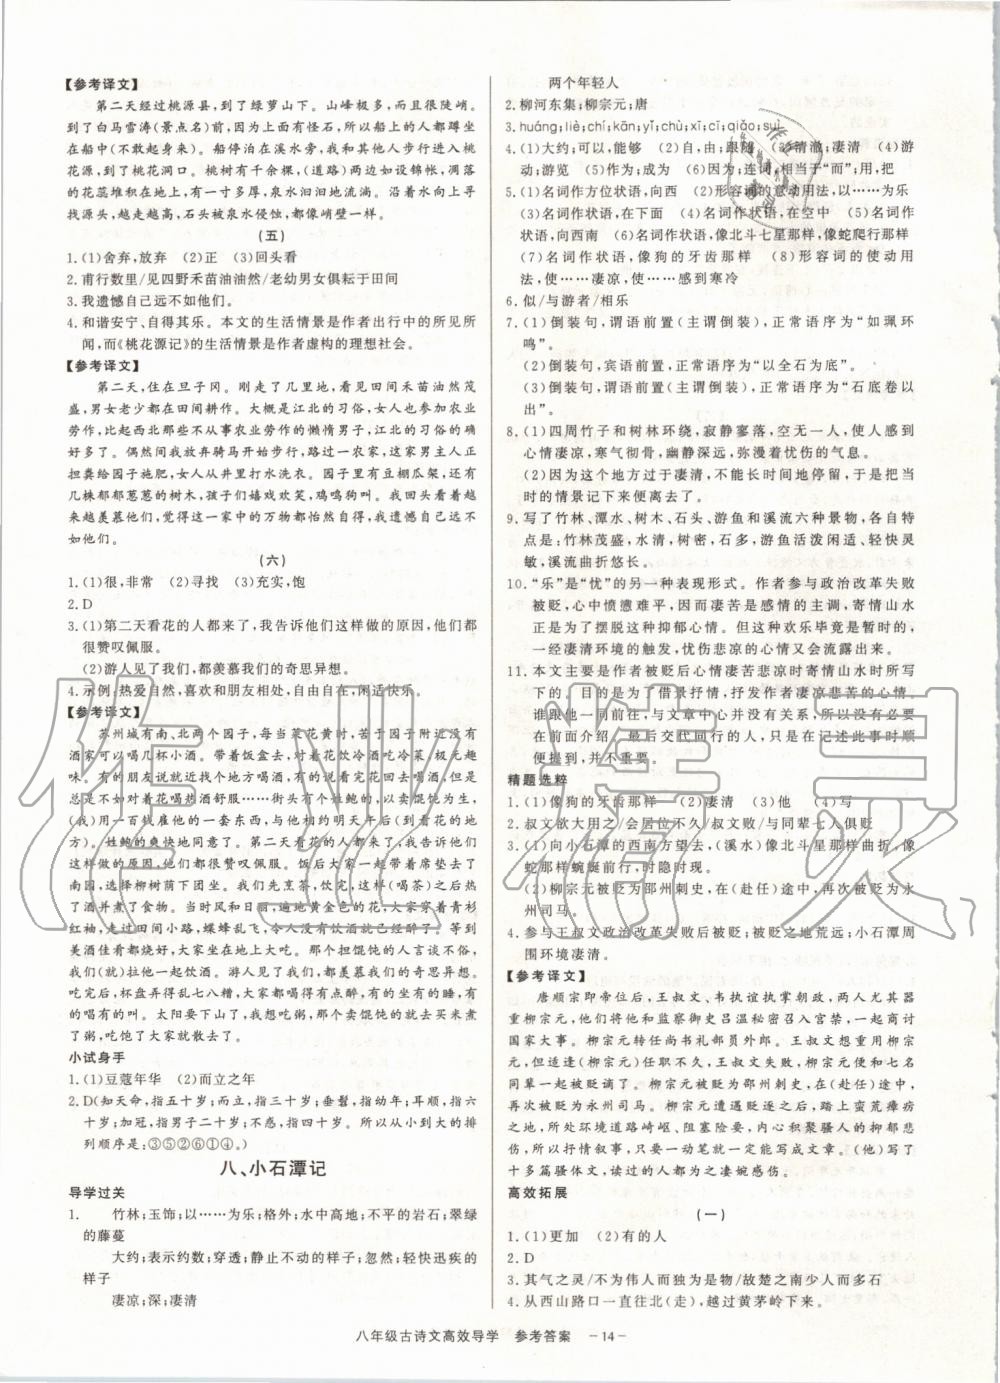 【参考译文】
第二天经过桃源县,到了绿萝山下。山峰极多,而且很陡峭。
到了白马雪涛(景点名)前面,因为上面有怪石,所以船上的人都蹲坐
在船中(不敢起身来)。船停泊在溪水旁,我步行经过桃花县,来到桃
花源,到了桃花洞口。桃树有千余棵,(道路)两边如设锦帐,凋落
的花蕊堆积在地上,有一寸多厚,泉水汩汩地流淌。沿着水向上寻
找源头,越走越高,石头被泉水侵蚀,都像峭壁一样。
(五)
1. (1)舍弃,放弃 (2)正 (3)回头看
2. 甫行数里/见四野禾苗油油然/老幼男女俱耘于田间
3. 我遗憾自己远不如他们。
4. 和谐安宁、自得其乐。本文的生活情景是作者出行中的所见所
闻,而《桃花源记》的生活情景是作者虚构的理想社会。
【参考译文】
第二天,住在旦子冈。刚走了几里地,看见田间禾苗油然茂
盛,男女老少都在田间耕作。大概是江北的习俗,女人也参加农业
劳作,比起西北那些不从事农业劳作的懒惰男子,江北的习俗的确
好多了。偶然间我放弃骑马开始步行,路过一农家,这家男主人正
担粪给园子施肥,女人从井里打水洗衣。园子里有豆棚瓜架,还有
几株郁郁葱葱的树木,孩子们嬉戏欢笑,鸡鸣狗叫。我回头看着越
来越羡慕他们,觉得这一家中的万物都怡然自得,我遗憾自己远不
如他们。
(六)
1. (1)很,非常 (2)寻找 (3)充实,饱
2. D
3. (1)第二天看花的人都来了,我告诉他们这样做的原因,他们都
很赞叹佩服。
(2)游人见了我们,都羡慕我们的奇思异想。
4. 示例:热爱自然,喜欢和朋友相处,自由自在,闲适快乐。
【参考译文】
苏州城有南、北两个园子,每当菜花黄时,苦于园子附近没有
酒家可以喝几杯小酒。带着饭盒去,对着花饮冷酒吃冷菜,极无趣
味。有的朋友说就近找个地方喝酒,有的朋友说看完花回来喝酒,
但想起来还是不如对着花喝热酒舒服……街头有个姓鲍的卖馄饨为生,
(我)用一百钱雇他的一套东西,与他相约明天午后(到看花的地
方)。姓鲍的爽快地同意了。第二天看花的人都来了,我告诉他们
这样做的原因,他们都很赞叹佩服。饭后大家一起带着席垫去了
南园,选择柳树荫下团坐。我们先烹茶,饮完,(这种喝茶)再热了
酒并煮了食物。当时风和日丽,遍地黄金色的花,大家穿着青衫
红袖,走过田间小路,蝶蜂乱飞,令人没有饮酒就已经醉了。等到
美酒佳肴都烧好,大家坐在地上大吃。担馄饨的人言谈不俗,
我们(就)拉他一起饮酒。游人见了我们,都羡慕我们的奇思异想。
吃完后,杯盘弄得乱七八糟,大家都喝得有点醉,有的坐着有的睡,
有的唱有的叫。太阳要下山了,我想喝粥,卖馄饨的人马上买来米
煮了粥,吃饱了大家就散去了。
小试身手
1. (1)豆蔻年华 (2)而立之年
2. D(知天命,指五十岁;而立,指三十岁;垂髫,指幼年;耳顺,指六
十岁;加冠,指男子二十岁;不惑,指四十岁。所以从小到大的排
列顺序是:③⑤②⑥①④。)
八、小石潭记
导学过关
1. 竹林;玉饰;以……为乐;格外;水中高地;不平的岩石;翠绿
的藤蔓
大约;表示约数;穿透;静止不动的样子;忽然;轻快迅疾的
样子
凄凉;深;凄清
两个年轻人
2. 柳河东集;柳宗元;唐
3. huáng;liè;chí;kān;yǐ;chù;xī;cī;qiǎo;suì
4. (1)大约;可以,能够 (2)自,由;跟随 (3)清澈;凄清 (4)游
动;游览 (5)作为;成为 (6)因为;连词,相当于“而”;用,把
5. (1)名词作方位状语,向西 (2)形容词的意动用法,以……为乐
(3)名词作状语,在下面 (4)名词作状语,在空中 (5)名词作
状语,向西南 (6)名词作状语,像北斗七星那样,像蛇爬行那样
(7)名词作状语,像狗的牙齿那样 (8)形容词的使动用
法,使……凄凉,使……感到寒冷
6. 似/与游者/相乐
7. (1)倒装句,谓语前置(主谓倒装),正常语序为“如珮环
鸣”。
(2)倒装句,宾语前置,正常语序为“以全石为底”。
(3)倒装句,谓语前置(主谓倒装),正常语序为“石底卷以
出”。
8. (1)四周竹子和树林环绕,寂静寥落,空无一人,使人感到心情
凄凉,寒气彻骨,幽静深远,弥漫着忧伤的气息。
(2)因为这个地方过于凄清,不能长时间地停留,于是把当
时的情景记下来便离去了。
9. 写了竹林、潭水、树木、石头、游鱼和溪流六种景物,各自特
点是:竹林茂盛,水清,树密,石多,游鱼活泼闲适、轻快灵
敏,溪流曲折悠长。
10. “乐”是“忧”的另一种表现形式。作者参与政治改革失败
被贬,心中愤懑难平,因而凄苦是感情的主调,寄情山水
正是为了摆脱这种抑郁心情。但这种欢乐毕竟是暂时的,
一经凄清环境的触发,忧伤悲凉的心情又会流露出来。
11. 本文主要是作者被贬后心情凄苦悲凉时寄情山水时所写
下的,目的是为了借景抒情,抒发作者凄凉悲苦的心情。
谁跟他一行,与文章中心并没有关系,所以没有必要
在前面介绍。最后交代同行的人,只是在记述此事时顺
便提到,并不重要。
精题选粹
1. (1)像狗的牙齿那样 (2)凄清 (3)他 (4)写
2. 叔文欲大用之/会居位不久/叔文败/与同辈七人俱贬
3. (1)向小石潭的西南方望去,(溪水)像北斗星那样曲折,像
蛇那样蜿蜒前行,时隐时现。
(2)柳宗元被贬为邵州刺史,在(赴任)途中,再次被贬为永
州司马。
4. 参与王叔文政治改革失败后被贬;被贬之地荒远;小石潭周
围环境凄清。
【参考译文】
唐顺宗即帝位后,王叔文、韦执谊执掌朝政,两人尤其器
重柳宗元,他们将他和监察御史吕温秘密召入宫禁,一起商讨
国家大事。柳宗元转任尚书礼部员外郎。王叔文想重用柳宗
元,但适逢(柳宗元)任职不久,王叔文失败,柳宗元便和七名
同辈一起被贬了官。柳宗元被贬为邵州刺史,在(赴任)途中,
再次被贬为永州司马。柳宗元遭遇贬逐之后,踏上蛮荒瘴疠
之地,所处环境道路崎岖、阻塞险要,内心积聚骚人的抑郁悲
伤,所以抒情叙事,只要一动笔就一定能写成文章。(他)写了
十多篇骚体文,读过的人都为之凄婉感伤。
高效拓展
(一)
1. (1)更加 (2)有的人
2. D
3. 其气之灵/不为伟人而独为是物/故楚之南少人而多石
4. 从西山路口一直往北走,越过黄茅岭下来。
八年级古诗文高效导学 参考答案 －14－